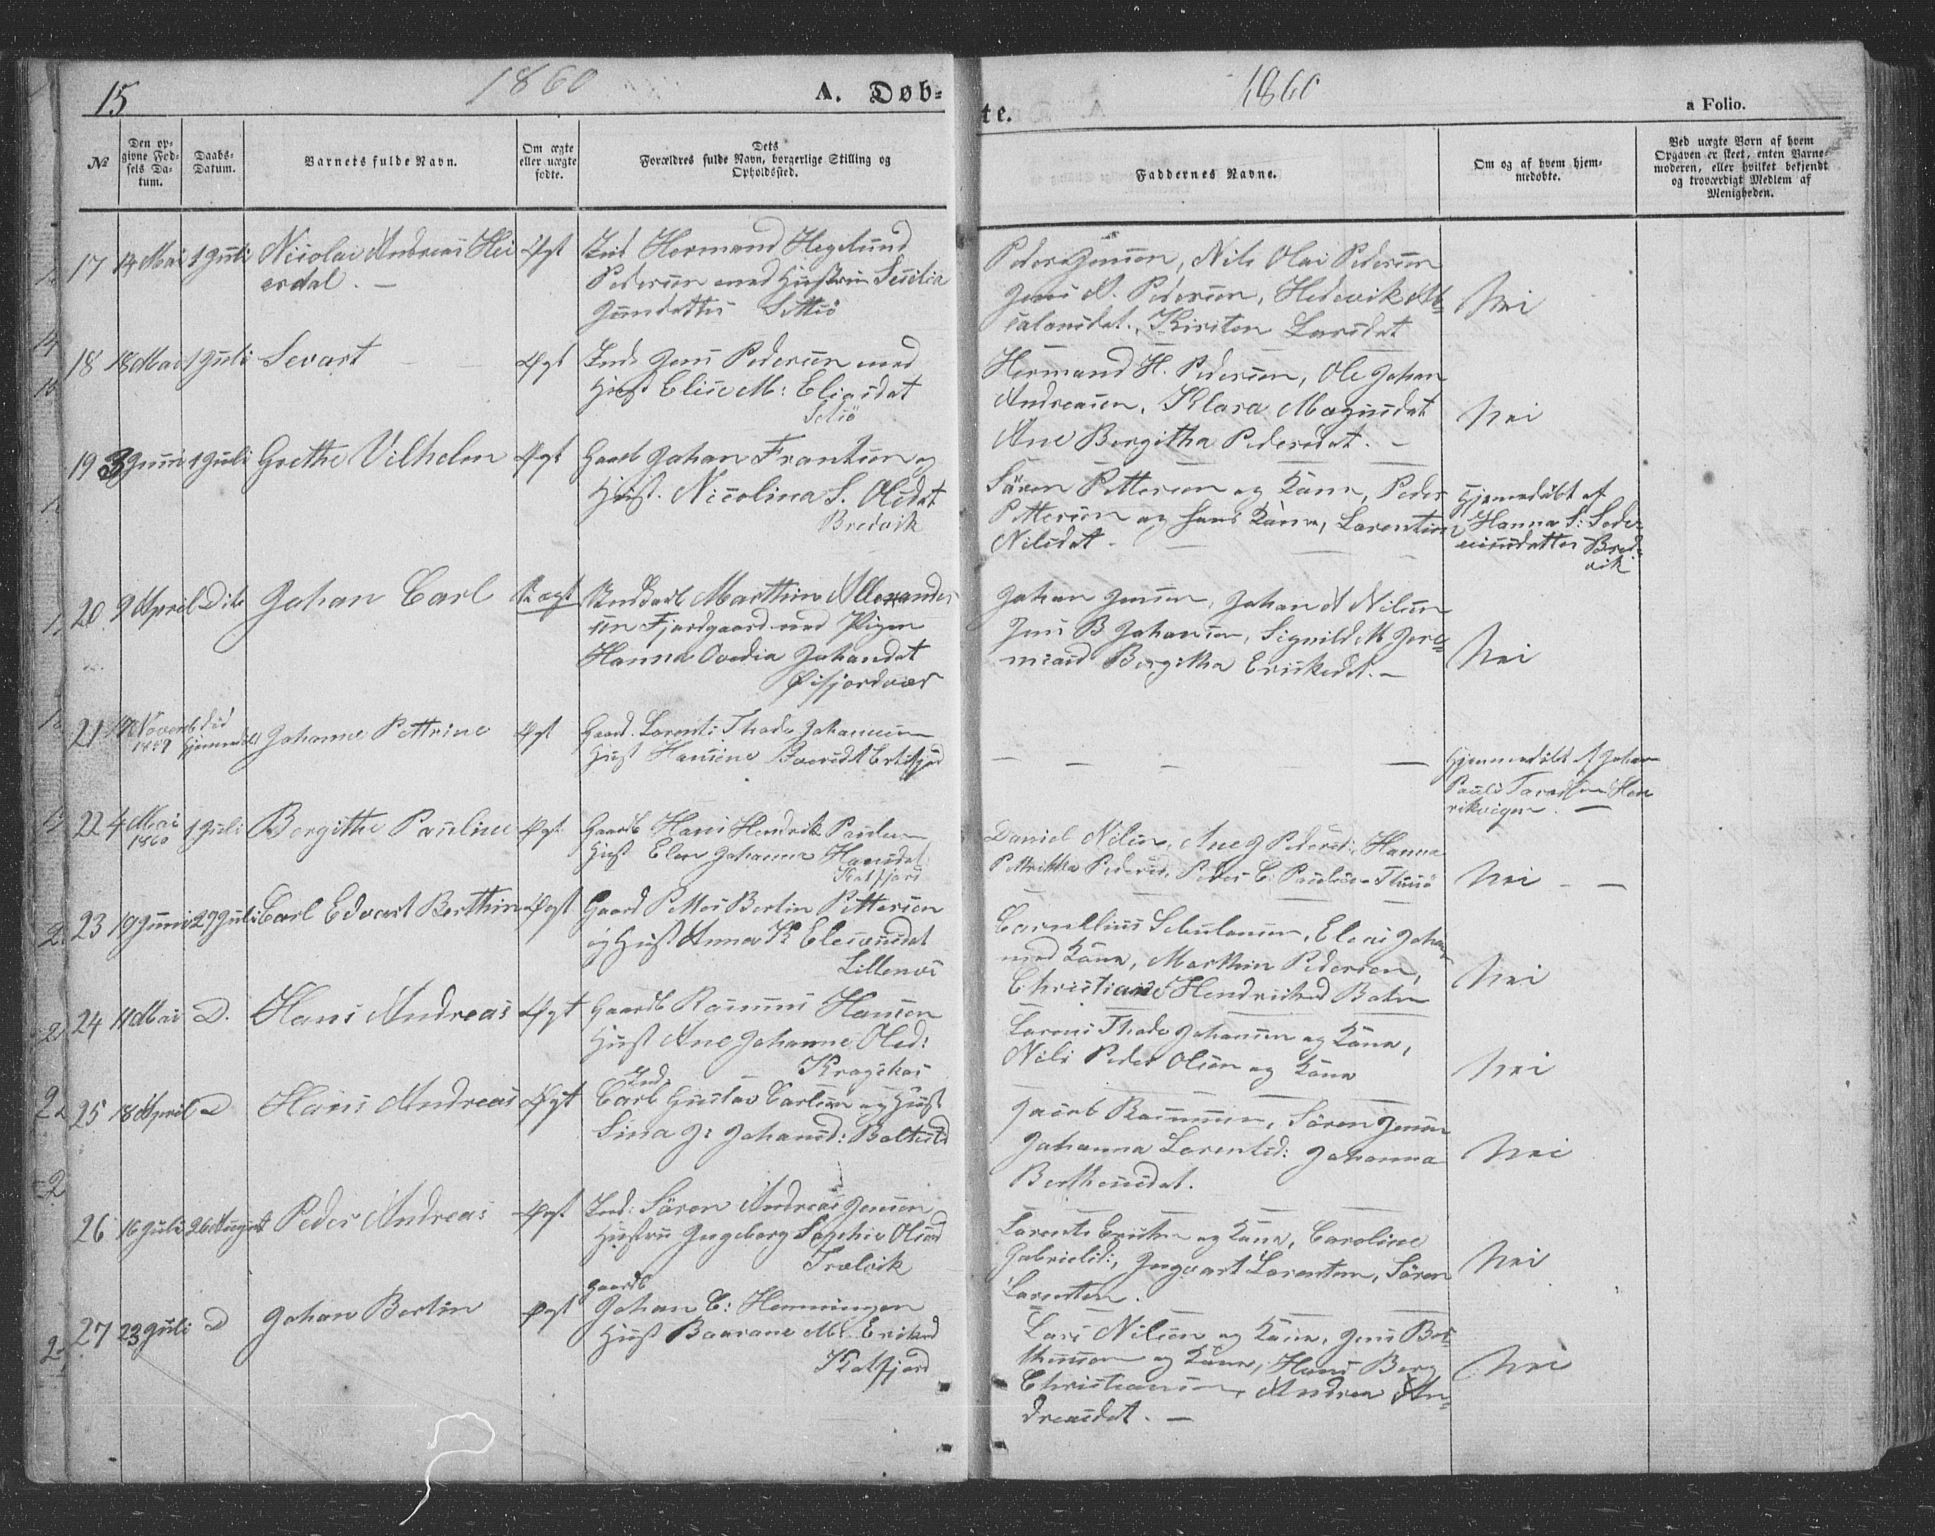 15
1860
A. Døb-
te.
1860
a Folio.
No
Den op-
givne Fød-
sels Da-
tum.
Daabs-
Datum.
Barnets fulde Navn.
Om ægte
eller uægte
fødte.
Dets
Forældres fulde Navn, borgerlige Stilling og
Opholdssted.
Faddernes Navne.
Om og af hvem hjem-
medøbte.
Ved uægte Børn af hvem
Opgaven er skeet, enten Barne-
moderen, eller hvilket bekjendt
og troværdigt Medlem af
Menigheden.
17 14 Mai 1 Juli Nicolai Andreas Hei Ægt Ind Hermand Hegelund
erdal. — Pedersen med Hustru
Peder Jensen, Nils Olai Pedersen
Jens N. Pedersen, Hedevik Ab-
salonsdat., Kirsten Larsdat
Nei
18 18 Mai 1 Juli Sevart Ægt Ind: Jens Pedersen med
Hust Elise M: Eliasdat
Hermand H. Pedersen, Ole Johan
Andreasen, Klara Magnusdat
Ane Bergitha Pedersdat. —
Nei
19 3 Juni 1 Juli Grethe Vilhelm Ægt Gaardb Johan Frantsen og
Hust. Nicolina S. Olsdat
Bredvik
Sören Pettersen og Kona, Peder
Pettersen og hans Kona, Larentine
Nilsdat.
Hjemmedöbt af
Hanna S:
Bred-
vik
20 9 April Dito Johan Carl Uægt Marthin Allexander
sen Fjordgaard med Pigen
Hanna Ovedia Johansdat
Öifjordvær
Johan Jensen, Johan A Nilsen
Jens B Johansen, Signild M Jere-
miasd Bergitha Eriksdat. —
Nei
21 19 Novemb 1859 död hjemmedöbt Johanne Pettrine Ægt Gaard. Lorents Thade Johannesen
Hust Hansine
Hjemmedöbt af Johan
Hen
rikvigen. —
22 4 Mai 1860 1 Juli Bergithe Pauline Ægt Gaardb Hans Hendrik Paulsen
Hust Elen Johanna Hansdat
Kalfjord
Daniel Nilsen, Ane J Pedersd: Hanna
Pettrikka Pedersd, Peder C. Paulsen
Nei — —
23 19 Juni 29 Juli Carl Edvart Berthin Ægt Gaard Petter Bertin Pettersen
og Hust Anna K
Lillenes
Cornellius Johan
med Kona, Marthin Pedersen,
Christiane Hendriksd
Nei
24 11 Mai D. Hans Andreas Ægt Gaardb Rasmus Hansen
Hust Ane Johanne Olsd:
Lorents Thade Johansen og Kona,
Nils Peder Olsen og Kona
Nei
25 18 April D Hans Andreas Ægt Ind
Carl Gustav Carlsen og Hust
Sina J: Johansd:
Jacob Rasmussen, Sören Jensen
Johanna Lorentsd: Johanna
Berthensdat.
Nei
26 16 Juli 26 August Peder Andreas Ægt Ind: Sören Andreas Jensen
Hustru Ingeborg Sophie Olsd
Trælvik
Lorents Eriksen og Kona, Caroline
Gabrielsd:, Ingvart Lorentsen, Sören
Lorentsen.
Nei
27 23 Juli D Johan Bertin Ægt Gaardb
Johan C: Henningsen
Hust Baarane M: Eriksd
Kalfjord
Lars Nilsen og Kona, Jens Ber-
thensen og Kona, Hans Berg
Christiansen, Andrea An-
dreasdat. —
Nei